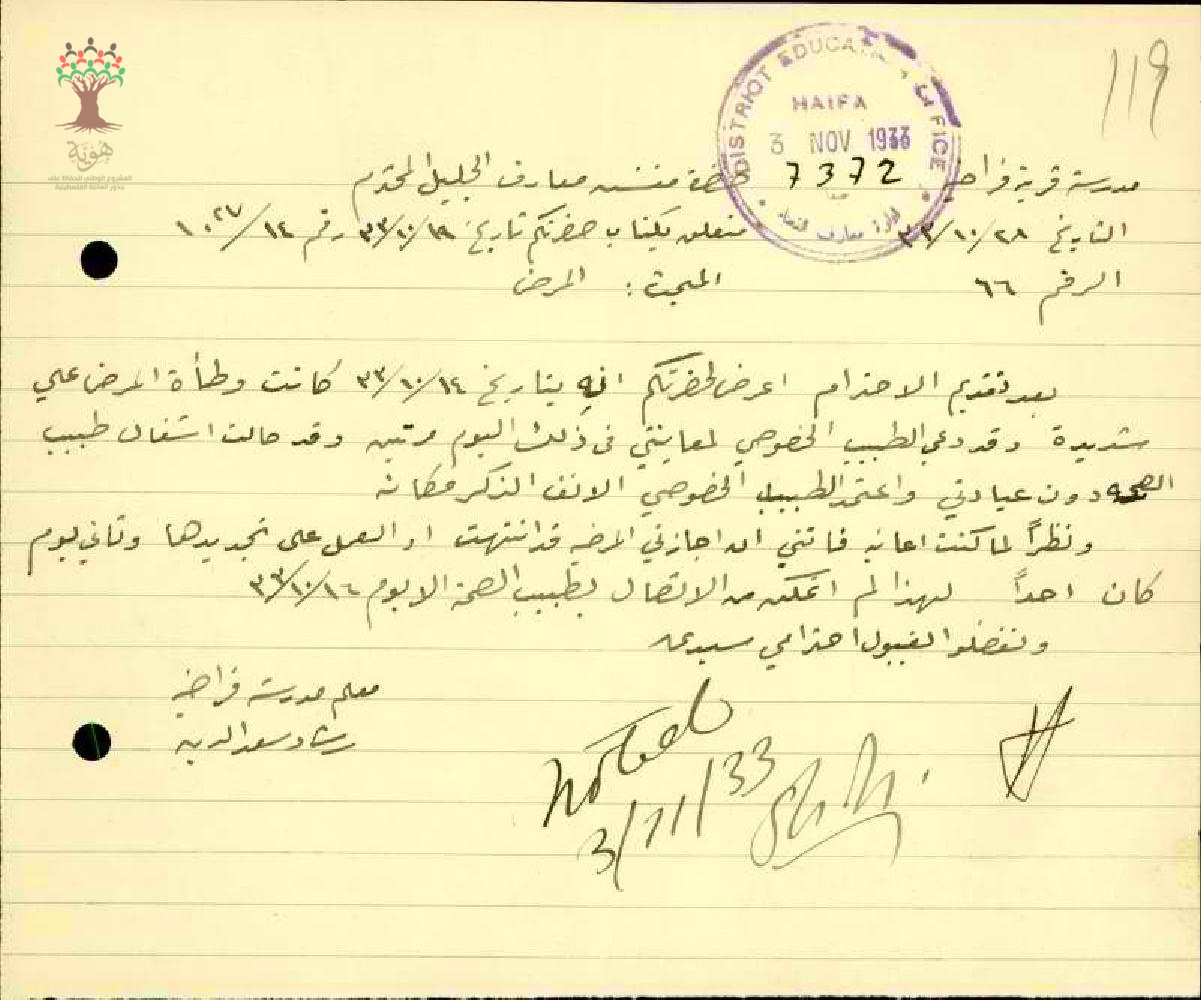 هوية
المشروع الوطني للحفاظ على
جذور العائلة الفلسطينية
119
DISTRICT EDUCATION OFFICE
HAIFA
3 NOV 1933
7372
ادارة معارف
مدرسة قرية فراضية
حضرة مفتش معارف الجليل المحترم
التاريخ ٢٨/١٠/٣٣
متعلق بكتاب حضرتكم تاريخ ١٩/١٠/٣٣ رقم ١٤/١٠٢٧
الرقم ٦٦
المبحث : المرض
بعد تقديم الاحترام اعرض لحضرتكم انه بتاريخ ١٤/١٠/٣٣ كانت وطأة المرض علي
شديدة وقد دعي الطبيب الخصوصي لمعاينتي في ذلك اليوم مرتين وقد حالت اشغال طبيب
الصحة دون عيادتي واعتمد الطبيب الخصوصي الانف الذكر مكانه
ونظراً لما كنت اعانيه فاتني ان اجازتي المرضية قد انتهت او العمل على تجديدها وثاني يوم
كان احداً لهذا لم اتمكن من الاتصال بطبيب الصحة الا يوم ١٦/١٠/٣٣
وتفضلوا بقبول احترامي سيدي
معلم مدرسة فراضية
رشاد سعد الدين
Noted
3/11/33